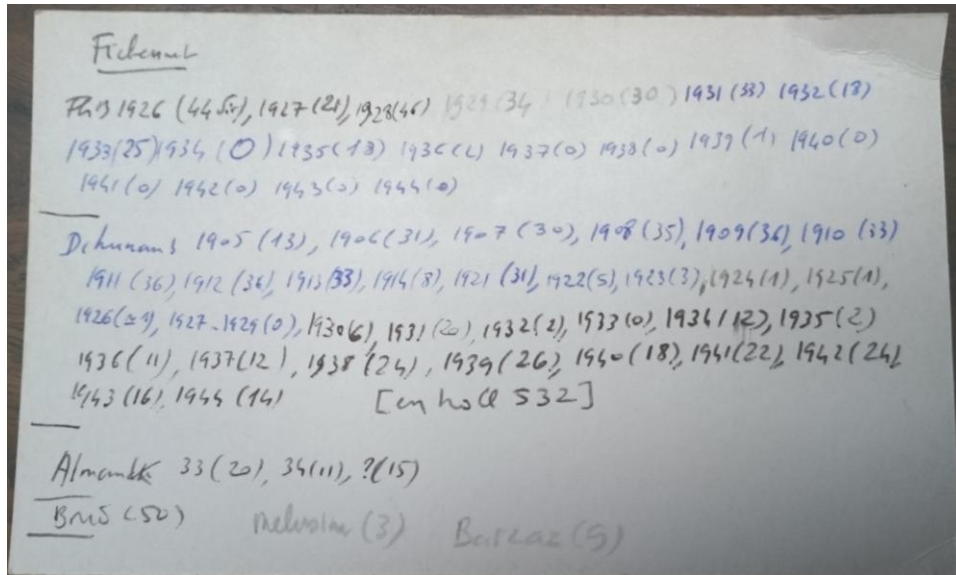 Fichennoù
1926 (44), 1927 (21), 1928 (46) 1929 (34) 1930 (30) 1931 (33) 1932 (18)
1933 (25) 1934 (0) 1935 (18) 1936 1937 (0) 1938 (0) 1939 (1) 1940 (0)
1941 (0) 1942 (0) 1943 (0) 1944 (0)
Dihunamb 1905 (13), 1906 (31), 1907 (30), 1908 (35), 1909 (36), 1910 (33)
1911 (36), 1912 (36), 1913 (33), 1914 (8), 1921 (31), 1922 (5), 1923 (3), 1924 (1), 1925 (1),
1926, 1927-1929 (0), 1930 (6), 1931 (20), 1932 (2), 1933 (0), 1934 (12), 1935 (2)
1936 (11), 1937 (12), 1938 (24), 1939 (26), 1940 (18), 1941 (22), 1942 (24),
1943 (16), 1944 (14) [en holl 532]
33 (20), 34 (11), ? (15)
(50) (3) Barzaz (5)